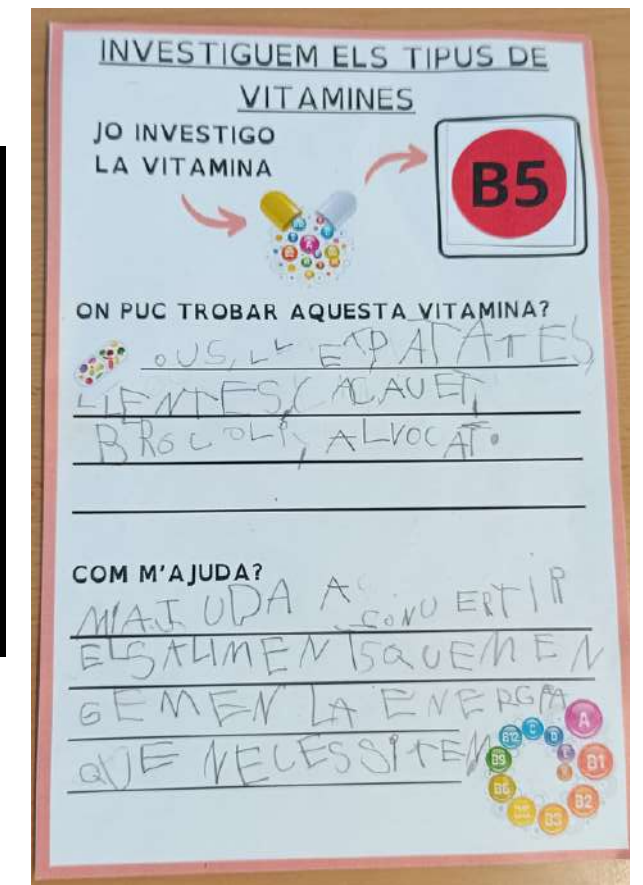 INVESTIGUEM ELS TIPUS DE
VITAMINES
JO INVESTIGO
LA VITAMINA
B5
ON PUC TROBAR AQUESTA VITAMINA?
OUS, LLET, PATATES,
LLENTES, CACAUET,
BROCOLI, ALVOCAT.
COM M'AJUDA?
M'AJUDA A CONVERTIR
ELS ALIMENTS QUE MEN
GEM EN LA ENERGIA
QUE NECESSITEM
A
B12
C
D
B9
B1
B6
B2
B3